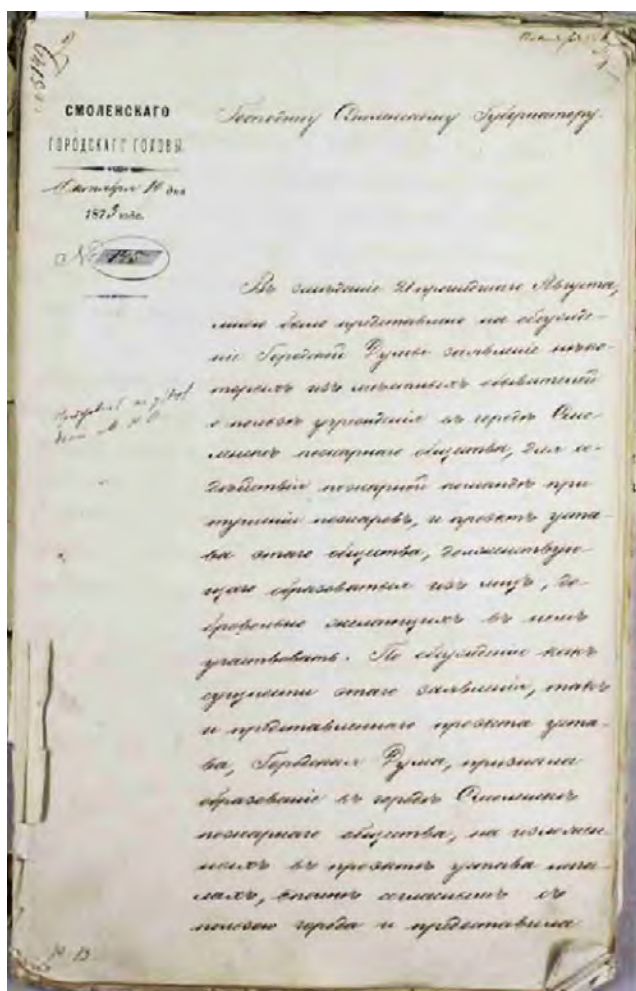 СМОЛЕНСКАГО
ГОРОДСКАГО ГОЛОВЫ.
10 дня
1873 года.
№ 195
Господину Смоленскому Губернатору.
Въ заседание 21 прошедшаго Августа,
мною было представлено на обсужде-
ніе Городской Думы заявленіе нѣко-
торыхъ изъ мѣстныхъ обывателей
о пользѣ учрежденія въ городѣ Смо-
ленскѣ пожарнаго общества, для со-
дѣйствія пожарной командѣ при
тушеніи пожаровъ, и проэктъ уста-
ва этаго общества, долженствую-
щаго образоваться изъ лицъ, до-
бровольно желающихъ въ немъ
участвовать. По обсужденіи какъ
сущности этаго заявленія, такъ
и представленнаго проэкта уста-
ва, Городская Дума, признала
образованіе въ городѣ Смоленскѣ
пожарнаго общества, на изложен-
ныхъ въ проэктѣ устава нача-
лахъ, вполнѣ согласнымъ съ
пользою города и предоставила